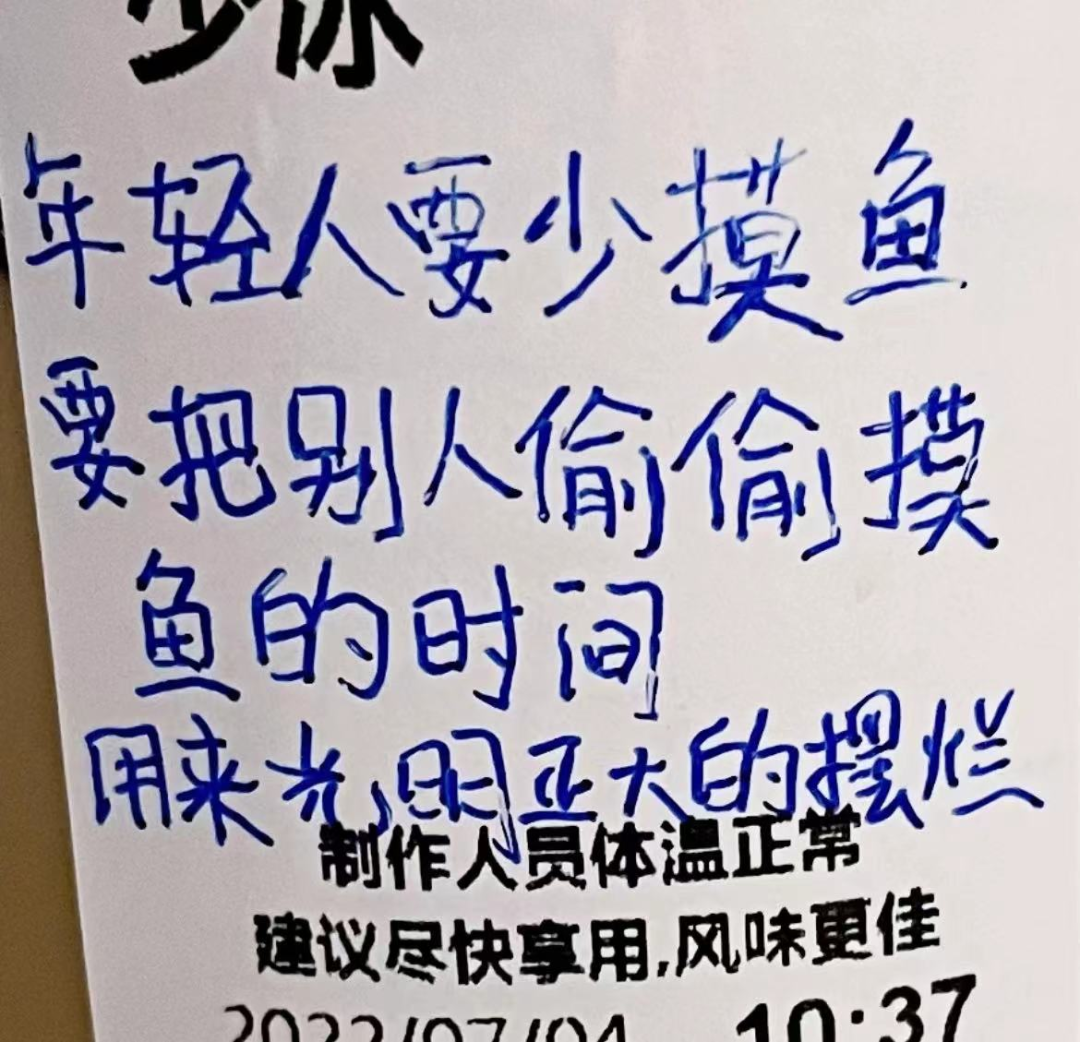 年轻人要少摸鱼
要把别人偷偷摸
鱼的时间
用来光明正大的摆烂
制作人员体温正常
建议尽快享用,风味更佳
2022/07/04 10:37